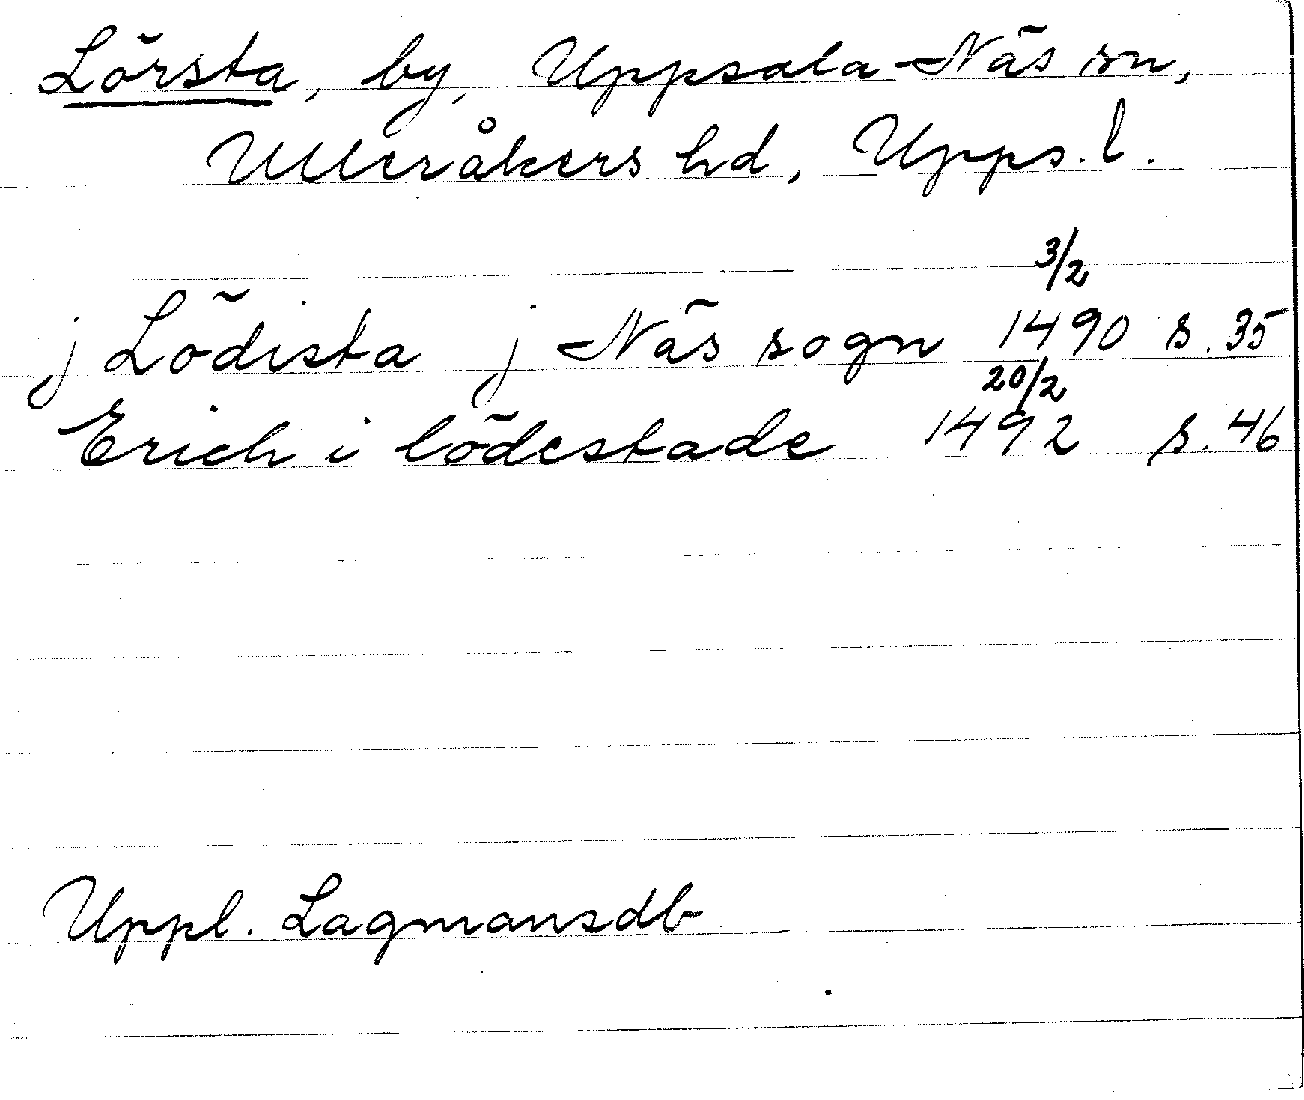 Lörsta, by, Uppsala-Näs sn,
Ulleråkers hd, Upps. l.
j Lödista j Näs sogn 3/2 1490 s. 35
Erich i lödestade 20/2 1492 s. 46
Uppl. Lagmansdb